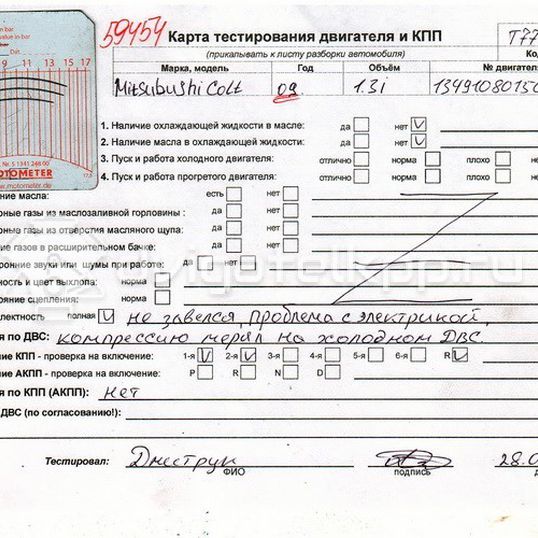 59454 Карта тестирования двигателя и КПП
(прикалывать к листу разборки автомобиля)
Марка, модель Год Объём № двигателя
Mitsubushi Colt 09 1.3i
9 11 13 15 17
17,5
Nr. 5 1341 246 00
MOTOMETER
www.motometer.de
1. Наличие охлаждающей жидкости в масле: да нет
2. Наличие масла в охлаждающей жидкости: да нет
3. Пуск и работа холодного двигателя: отлично норма плохо нет
4. Пуск и работа прогретого двигателя: отлично норма плохо нет
ние масла: есть нет
рные газы из маслозаливной горловины : да нет
рные газы из отверстия масляного щупа: да нет
ие газов в расширительном бачке: да нет
ронние звуки или шумы при работе: да нет
ность и цвет выхлопа: норма
ояние сцепления: норма
лектность полная не завелся, проблема с электрикой,
я по ДВС: компрессию мерял на холодном ДВС
ние КПП - проверка на включение: 1-я 2-я 3-я 4-я 5-я 6-я R
ние АКПП - проверка на включение: P R N D
я по КПП (АКПП): нет
ДВС (по согласованию!):
Тестировал: Дмитрук 28.0
ФИО подпись
vigotelkpp.ru